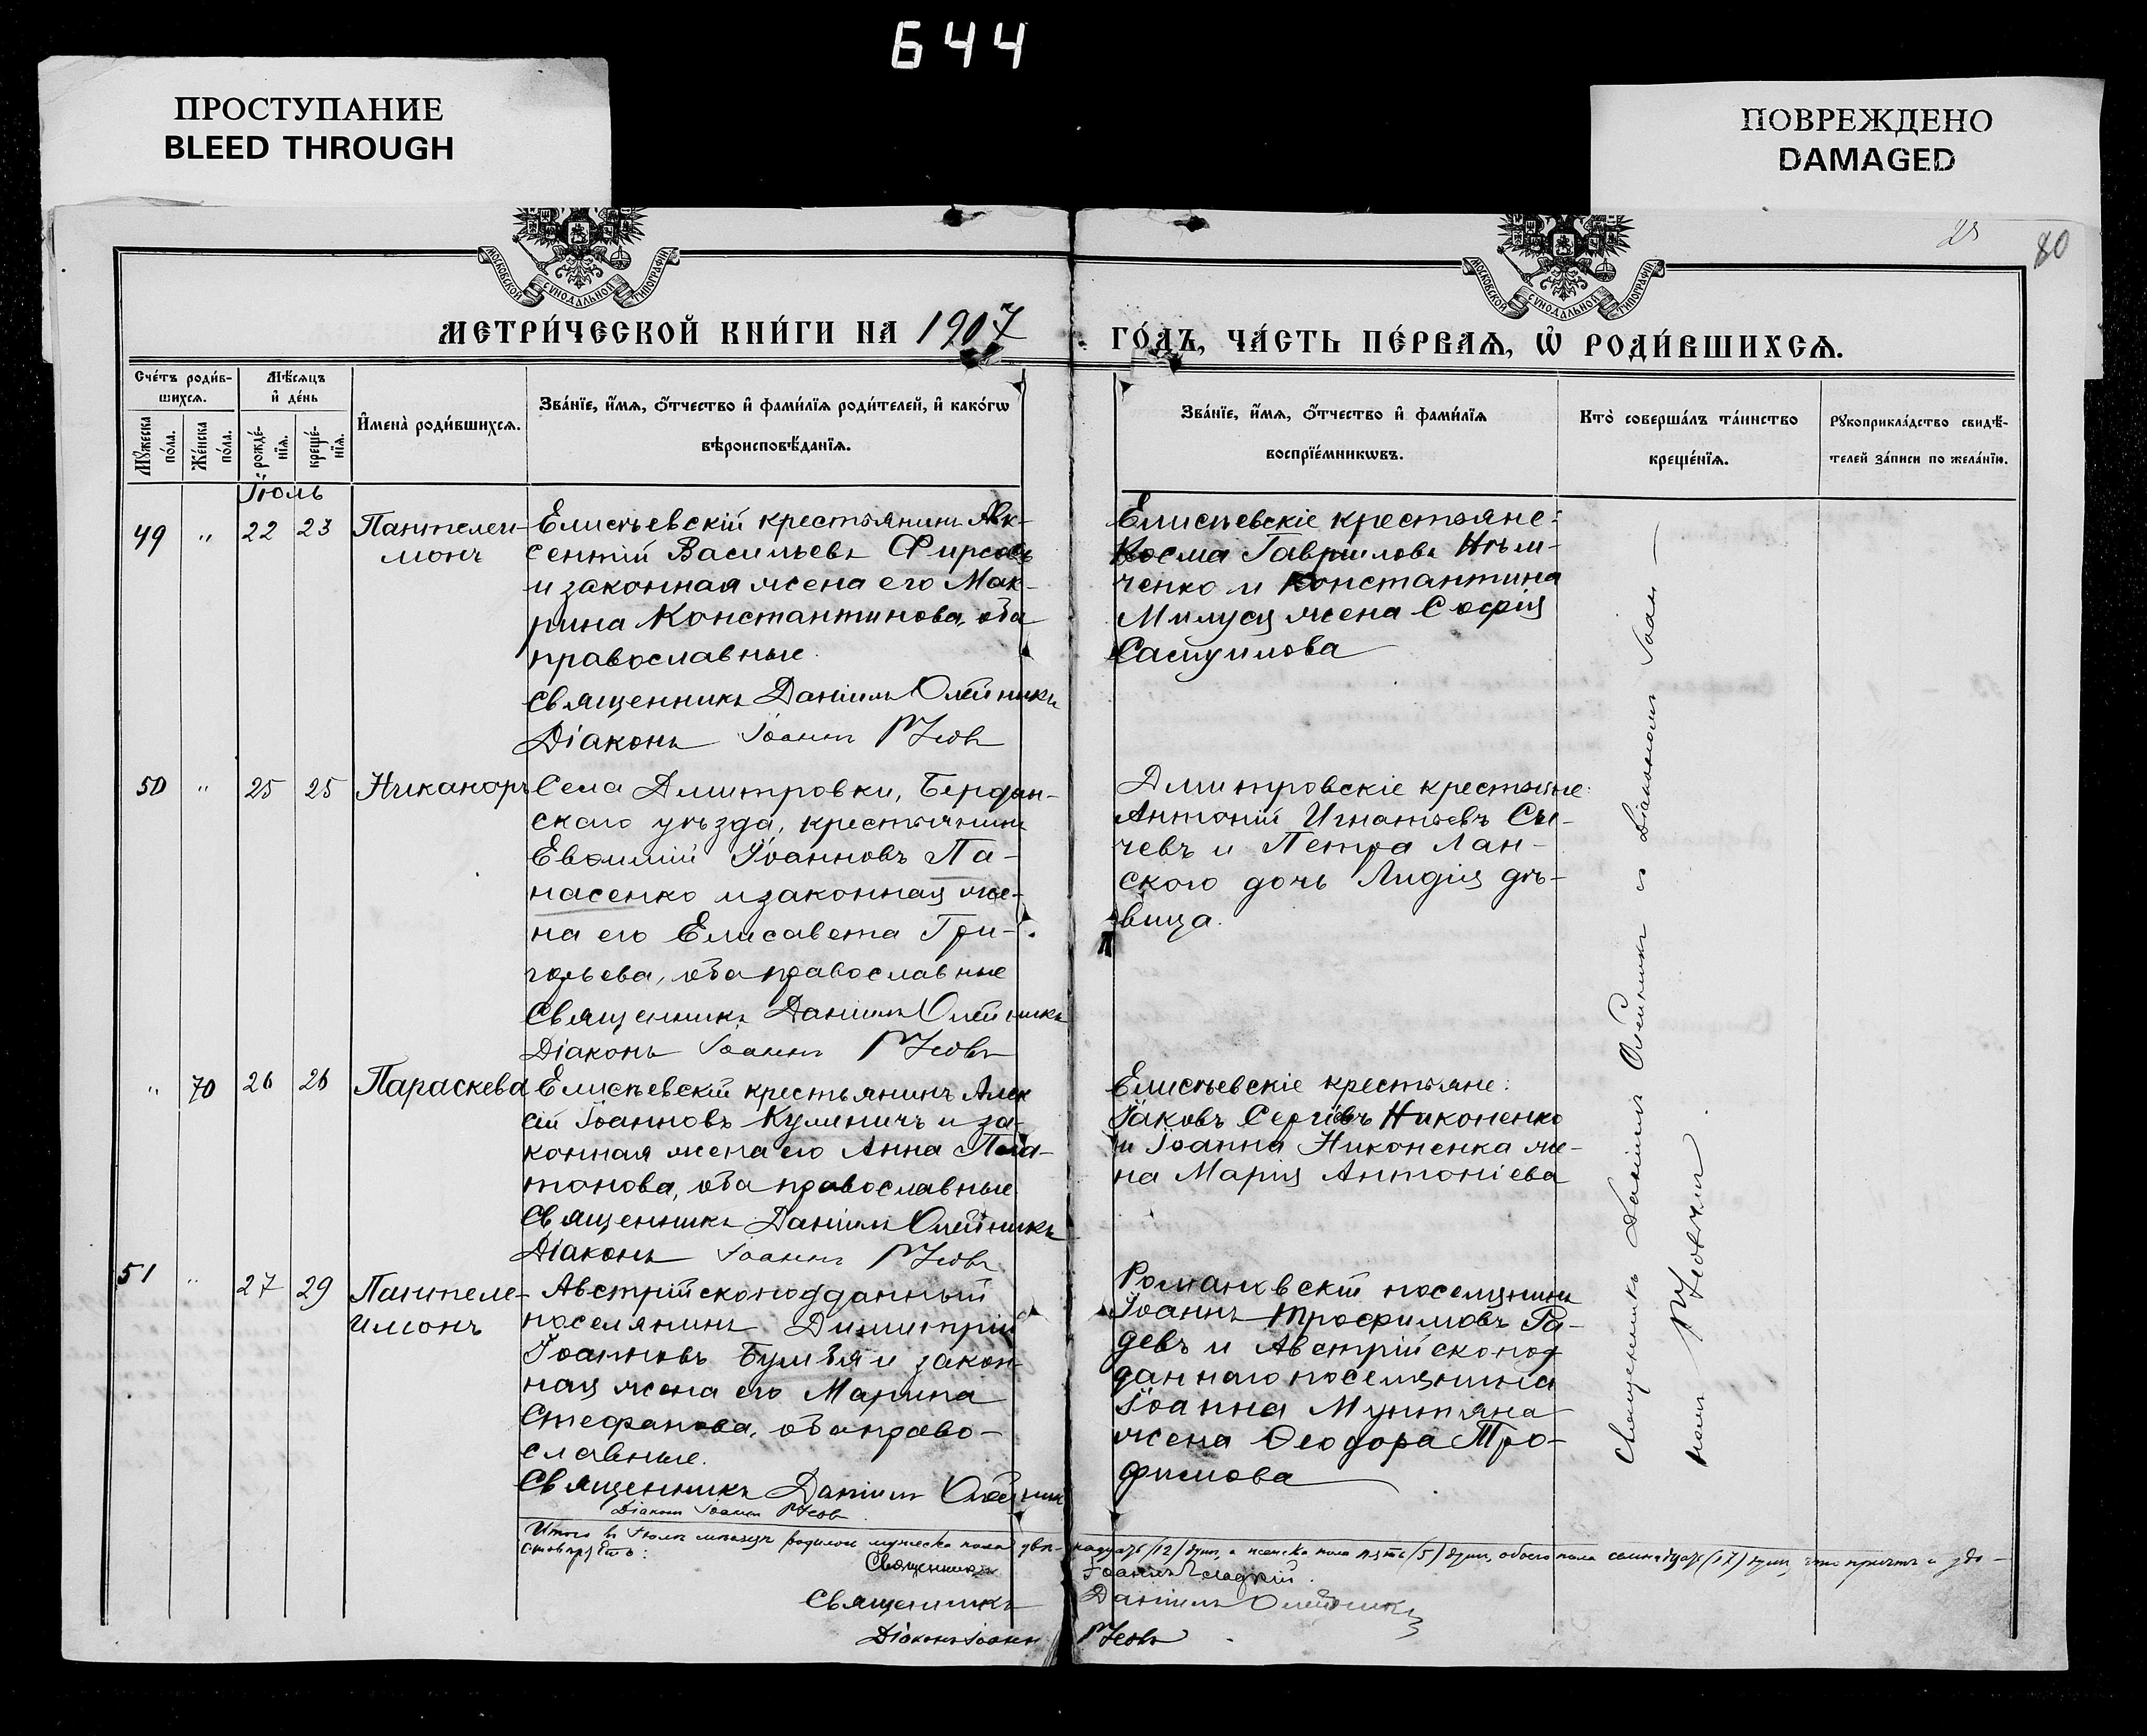 644
ПРОСТУПАНИЕ
BLEED THROUGH
ПОВРЕЖДЕНО
DAMAGED
80
МОСКОВСКОЙ СѴНОДАЛЬНОЙ ТИПОГРАФІИ
МОСКОВСКОЙ СѴНОДАЛЬНОЙ ТИПОГРАФІИ
МЕТРИ́ЧЕСКОЙ КНИ́ГИ НА 1907 ГО́ДЪ, ЧА́СТЬ ПЕ́РВАѦ, Ѡ҆ РОДИ́ВШИХСѦ.
Сче́тъ роди́в-
шихсѧ.
Мѣ́сѧцъ
и҆ де́нь
Мꙋжеска по́ла.
Же́нска по́ла.
рожде́-нїѧ.
креще́-нїѧ.
И҆мена̀ роди́вшихсѧ.
Зва́нїе, и҆́мѧ, ѻ҆́тчество и҆ фами́лїѧ роди́телей, и҆ како́гѡ
вѣроисповѣ́данїѧ.
Зва́нїе, и҆́мѧ, ѻ҆́тчество и҆ фами́лїѧ
воспрїе́мникѡвъ.
Кто̀ соверша́лъ та́инство
креще́нїѧ.
Рꙋкоприкла́дство свидѣ́-
телей за́писи по жела́нїю.
Іюль
49 " 22 23 Пантелеи-
монъ
Елисѣевскій крестьянинъ Авк-
сентій Васильевъ Фирсовъ
и законная жена его Мак-
рина Константинова, оба
православные.
Священникъ Даніилъ Олейникъ
Діаконъ Іоаннъ
Елисѣевскіе крестьяне:
Косма Гавриловъ Нѣм-
ченко и Константина
Милуся жена Софія
Самуилова
50 " 25 25 Никаноръ
Села Дмитровки, Бердян-
скаго уѣзда, крестьянинъ
Евѳимій Іоанновъ Па-
насенко и законная же-
на его Елисавета Гри-
горьева, оба православные
Священникъ Даніилъ Олейникъ
Діаконъ Іоаннъ
Дмитровскіе крестьяне:
Антоній Игнатьевъ Сы-
чевъ и Петра Лан-
ского дочь Лидія дѣ-
вица.
" 70 26 26 Параскева
Елисѣевскій крестьянинъ Алек
сій Іоанновъ Кулиничъ и за-
конная жена его Анна Пла-
тонова, оба православные
Священникъ Даніилъ Олейникъ
Діаконъ Іоаннъ
Елисѣевскіе крестьяне:
Іаковъ Сергіевъ Никоненко
и Іоанна Никоненка же-
на Марія Антоніева
51 " 27 29 Пантеле-
имонъ
Австрійскоподданный
поселянинъ Димитрій
Іоанновъ и закон-
ная жена его Марина
Стефанова, оба право-
славные.
Священникъ Даніилъ Олейникъ
Діаконъ Іоаннъ
Романовскій поселянинъ
Іоаннъ Трофимовъ Ра-
девъ и Австрійскопод
даннаго поселянина
Іоанна Мунтяна
жена Ѳеодора Тро-
фимова
Священникъ Даніилъ Олейникъ съ Діакономъ Іоан-
номъ
Итого въ Іюлѣ мѣсяцѣ родилось мужеска пола двѣ-надцать (12) душъ, а женска пола пять (5) душъ, обоего пола семнадцать (17) душъ, что причтъ и удо-
стовѣряетъ:
Священникъ Іоаннъ
Священникъ Даніилъ Олейникъ
Діаконъ Іоаннъ